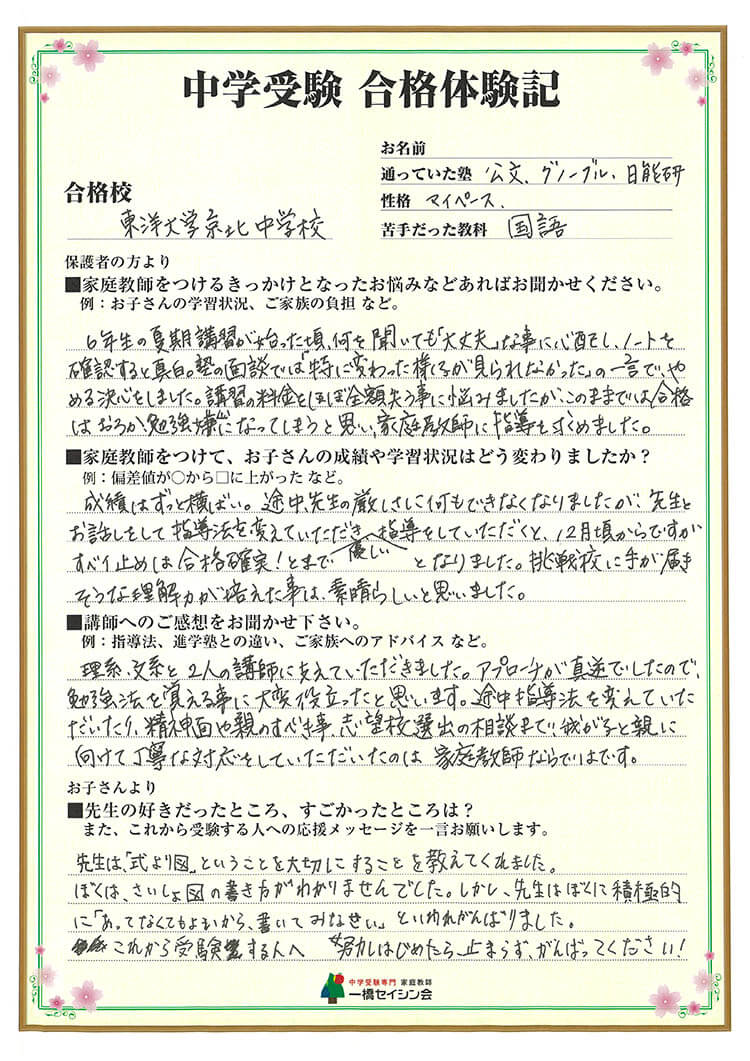 中学受験 合格体験記
お名前
通っていた塾 公文、グノーブル、日能研
合格校
性格 マイペース、
東洋大学京北中学校
苦手だった教科 国語
保護者の方より
■家庭教師をつけるきっかけとなったお悩みなどあればお聞かせください。
例：お子さんの学習状況、ご家族の負担 など。
6年生の夏期講習が始った頃、何を聞いても「大丈夫」な事に心配し、ノートを
確認すると真白。塾の面談では「特に変わった様子が見られなかった」の一言で、や
める決心をしました。講習の料金をほぼ全額失う事に悩みましたが、このままでは合格
はおろか、勉強嫌いになってしまうと思い、家庭教師に指導を求めました。
■家庭教師をつけて、お子さんの成績や学習状況はどう変わりましたか？
例：偏差値が○から□に上がった など。
成績はずっと横ばい。途中、先生の厳しさに何もできなくなりましたが、先生と
お話しをして指導法を変えていただき、優しい指導をしていただくと、12月頃からですが
すべり止めは合格確実！とまで となりました。挑戦校に手が届き
そうな理解力が培えた事は、素晴らしいと思いました。
■講師へのご感想をお聞かせ下さい。
例：指導法、進学塾との違い、ご家族へのアドバイス など。
理系、文系と2人の講師に支えていただきました。アプローチが真逆でしたので、
勉強法を覚える事に大変役立ったと思います。途中指導法を変えていた
だいたり、精神面や親のすべき事、志望校選出の相談まで！我が子と親に
向けて丁寧な対応をしていただいたのは 家庭教師ならではです。
お子さんより
■先生の好きだったところ、すごかったところは？
また、これから受験する人への応援メッセージを一言お願いします。
先生は、「式より図」ということを大切にすることを教えてくれました。
ぼくは、さいしょ図の書き方がわかりませんでした。しかし、先生はぼくに積極的
に「あってなくてもよいから、書いてみなさい」といわれがんばりました。
これから受験する人へ 努力しはじめたら、止まらず、がんばってください！
中学受験専門 家庭教師
一橋セイシン会